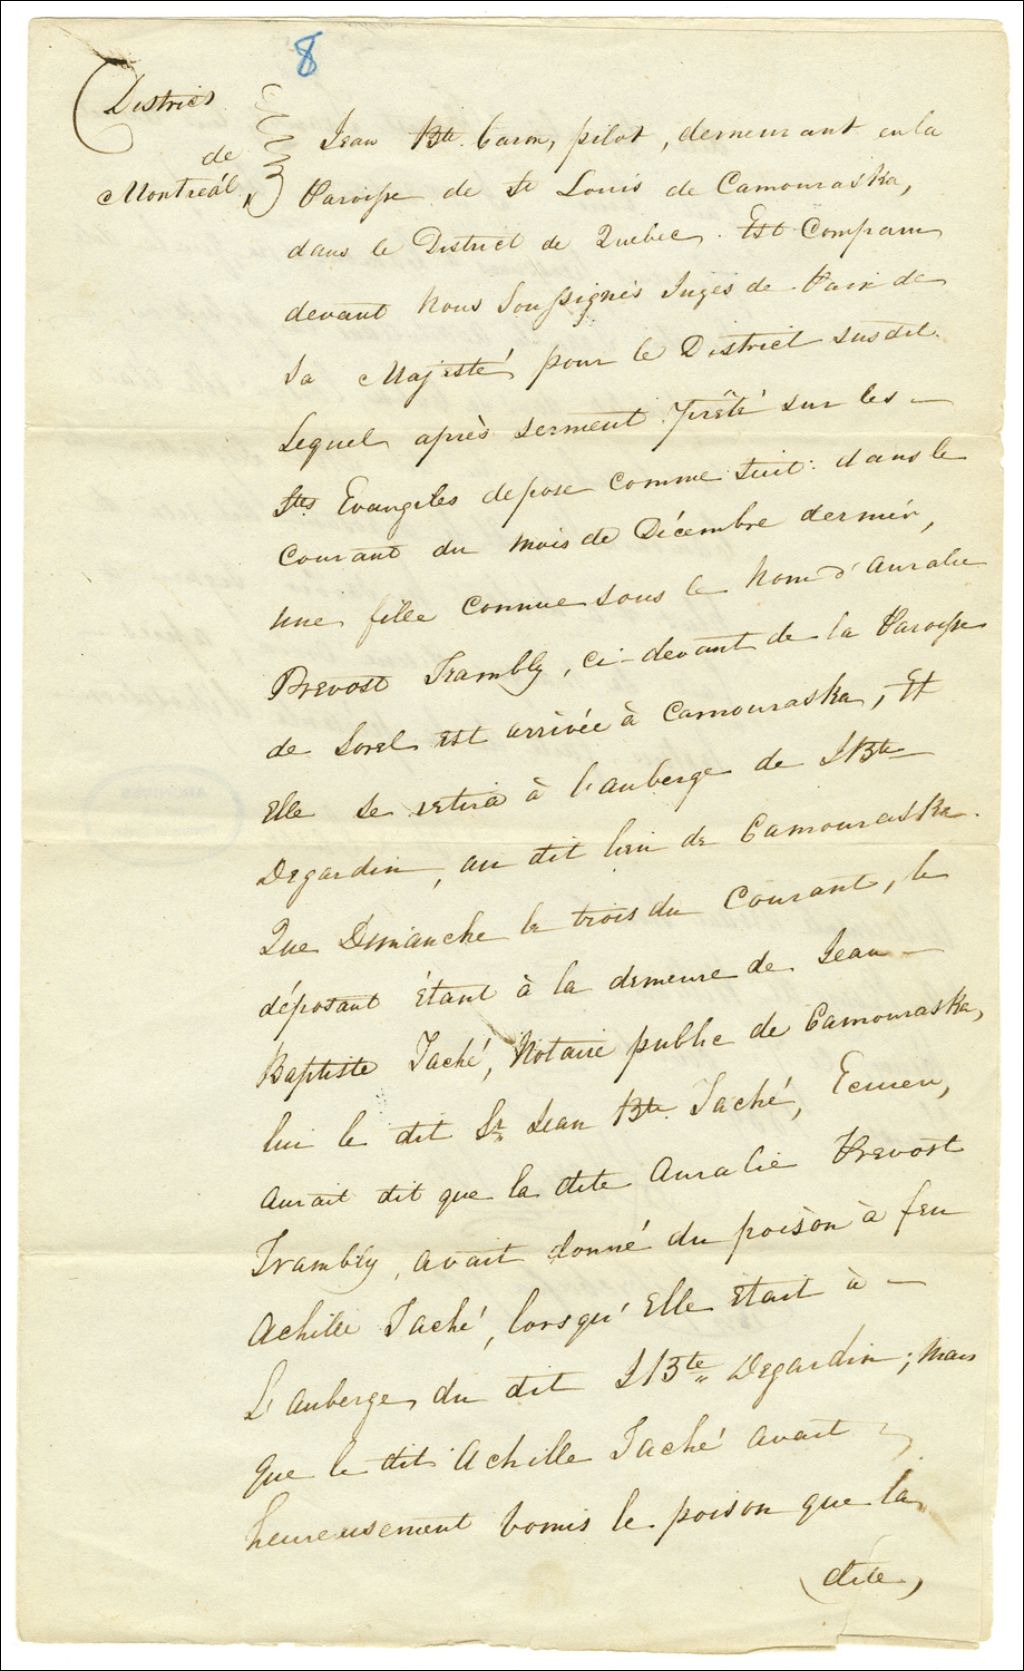 8
District
de
Montreál
Jean Bte. Caron, pilot, demeurant en la
Paroisse de St Louis de Camouraska,
dans le District de Quebec. Est Comparu
devant Nous Soussignés Juges de Paix de
Sa Majesté pour le District susdit.
Lequel après serment prêté sur les —
Stes Evangiles depose comme suit: dans le
Courant du mois de Décembre dernièr,
une fille connue sous le Nom d'Auralie
Prevost Trambly, ci-devant de la Paroisse
de Sorel est arrivée à Camouraska, Et
Elle se retira à l'auberge de JBte
Degardin, au dit lieu de Camouraska.
Que Dimanche le trois du Courant, le
déposant étant à la demeure de Jean —
Baptiste Taché, Notaire public de Camouraska,
lui le dit Sr Jean Bte. Taché, Ecuier,
aurait dit que la dite Auralie Prevost
Trambly, avait donné du poison à feu
Achille Taché, lorsqu'Elle Etait à —
L'auberge du dit JBte Degardin; Mais
Que le dit Achille Taché avait
heureusement vomis le poison que la
dite,